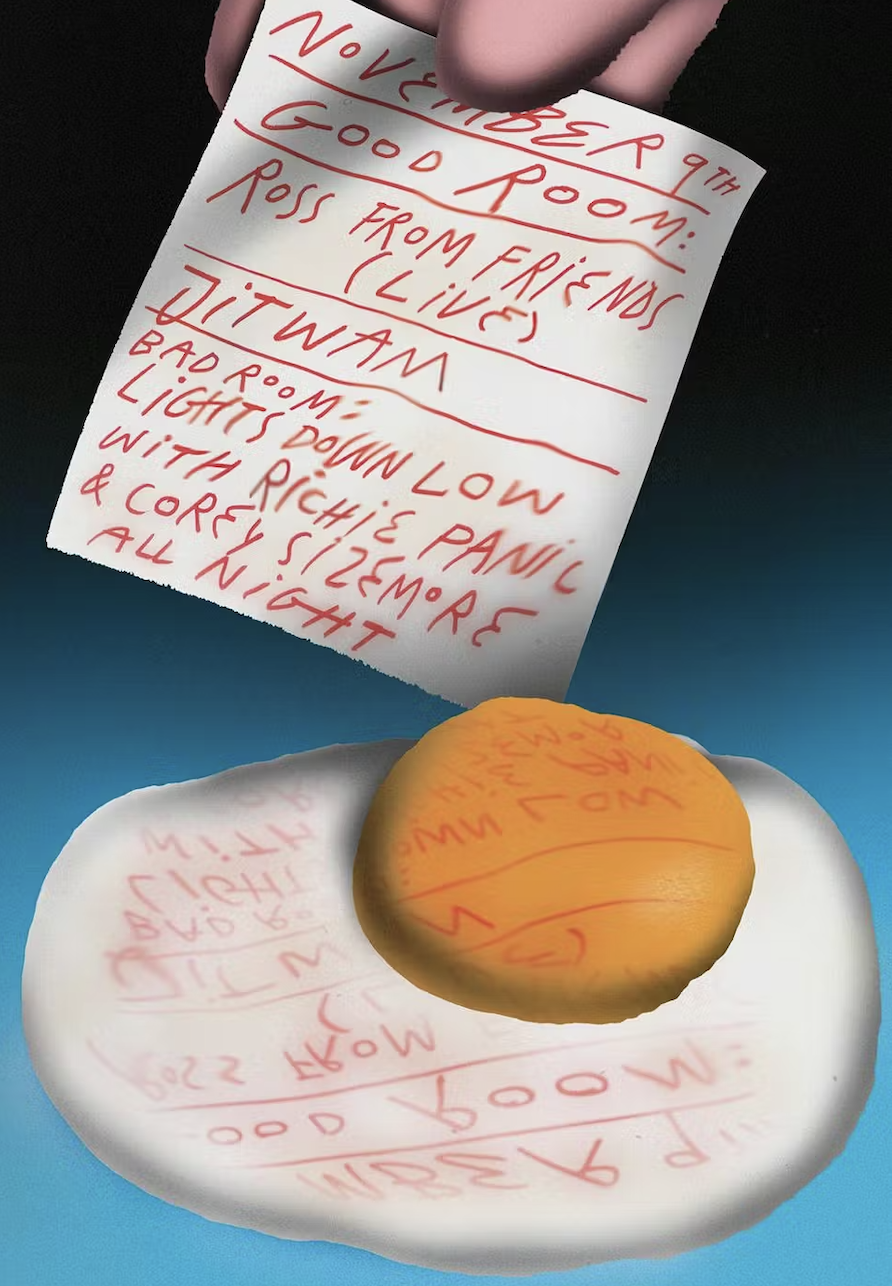 NOVEMBER 9TH
GOOD ROOM:
ROSS FROM FRIENDS
(LIVE)
JITWAM
BAD ROOM:
LIGHTS DOWN LOW
WITH RICHIE PANIC
& COREY SIZEMORE
ALL NIGHT